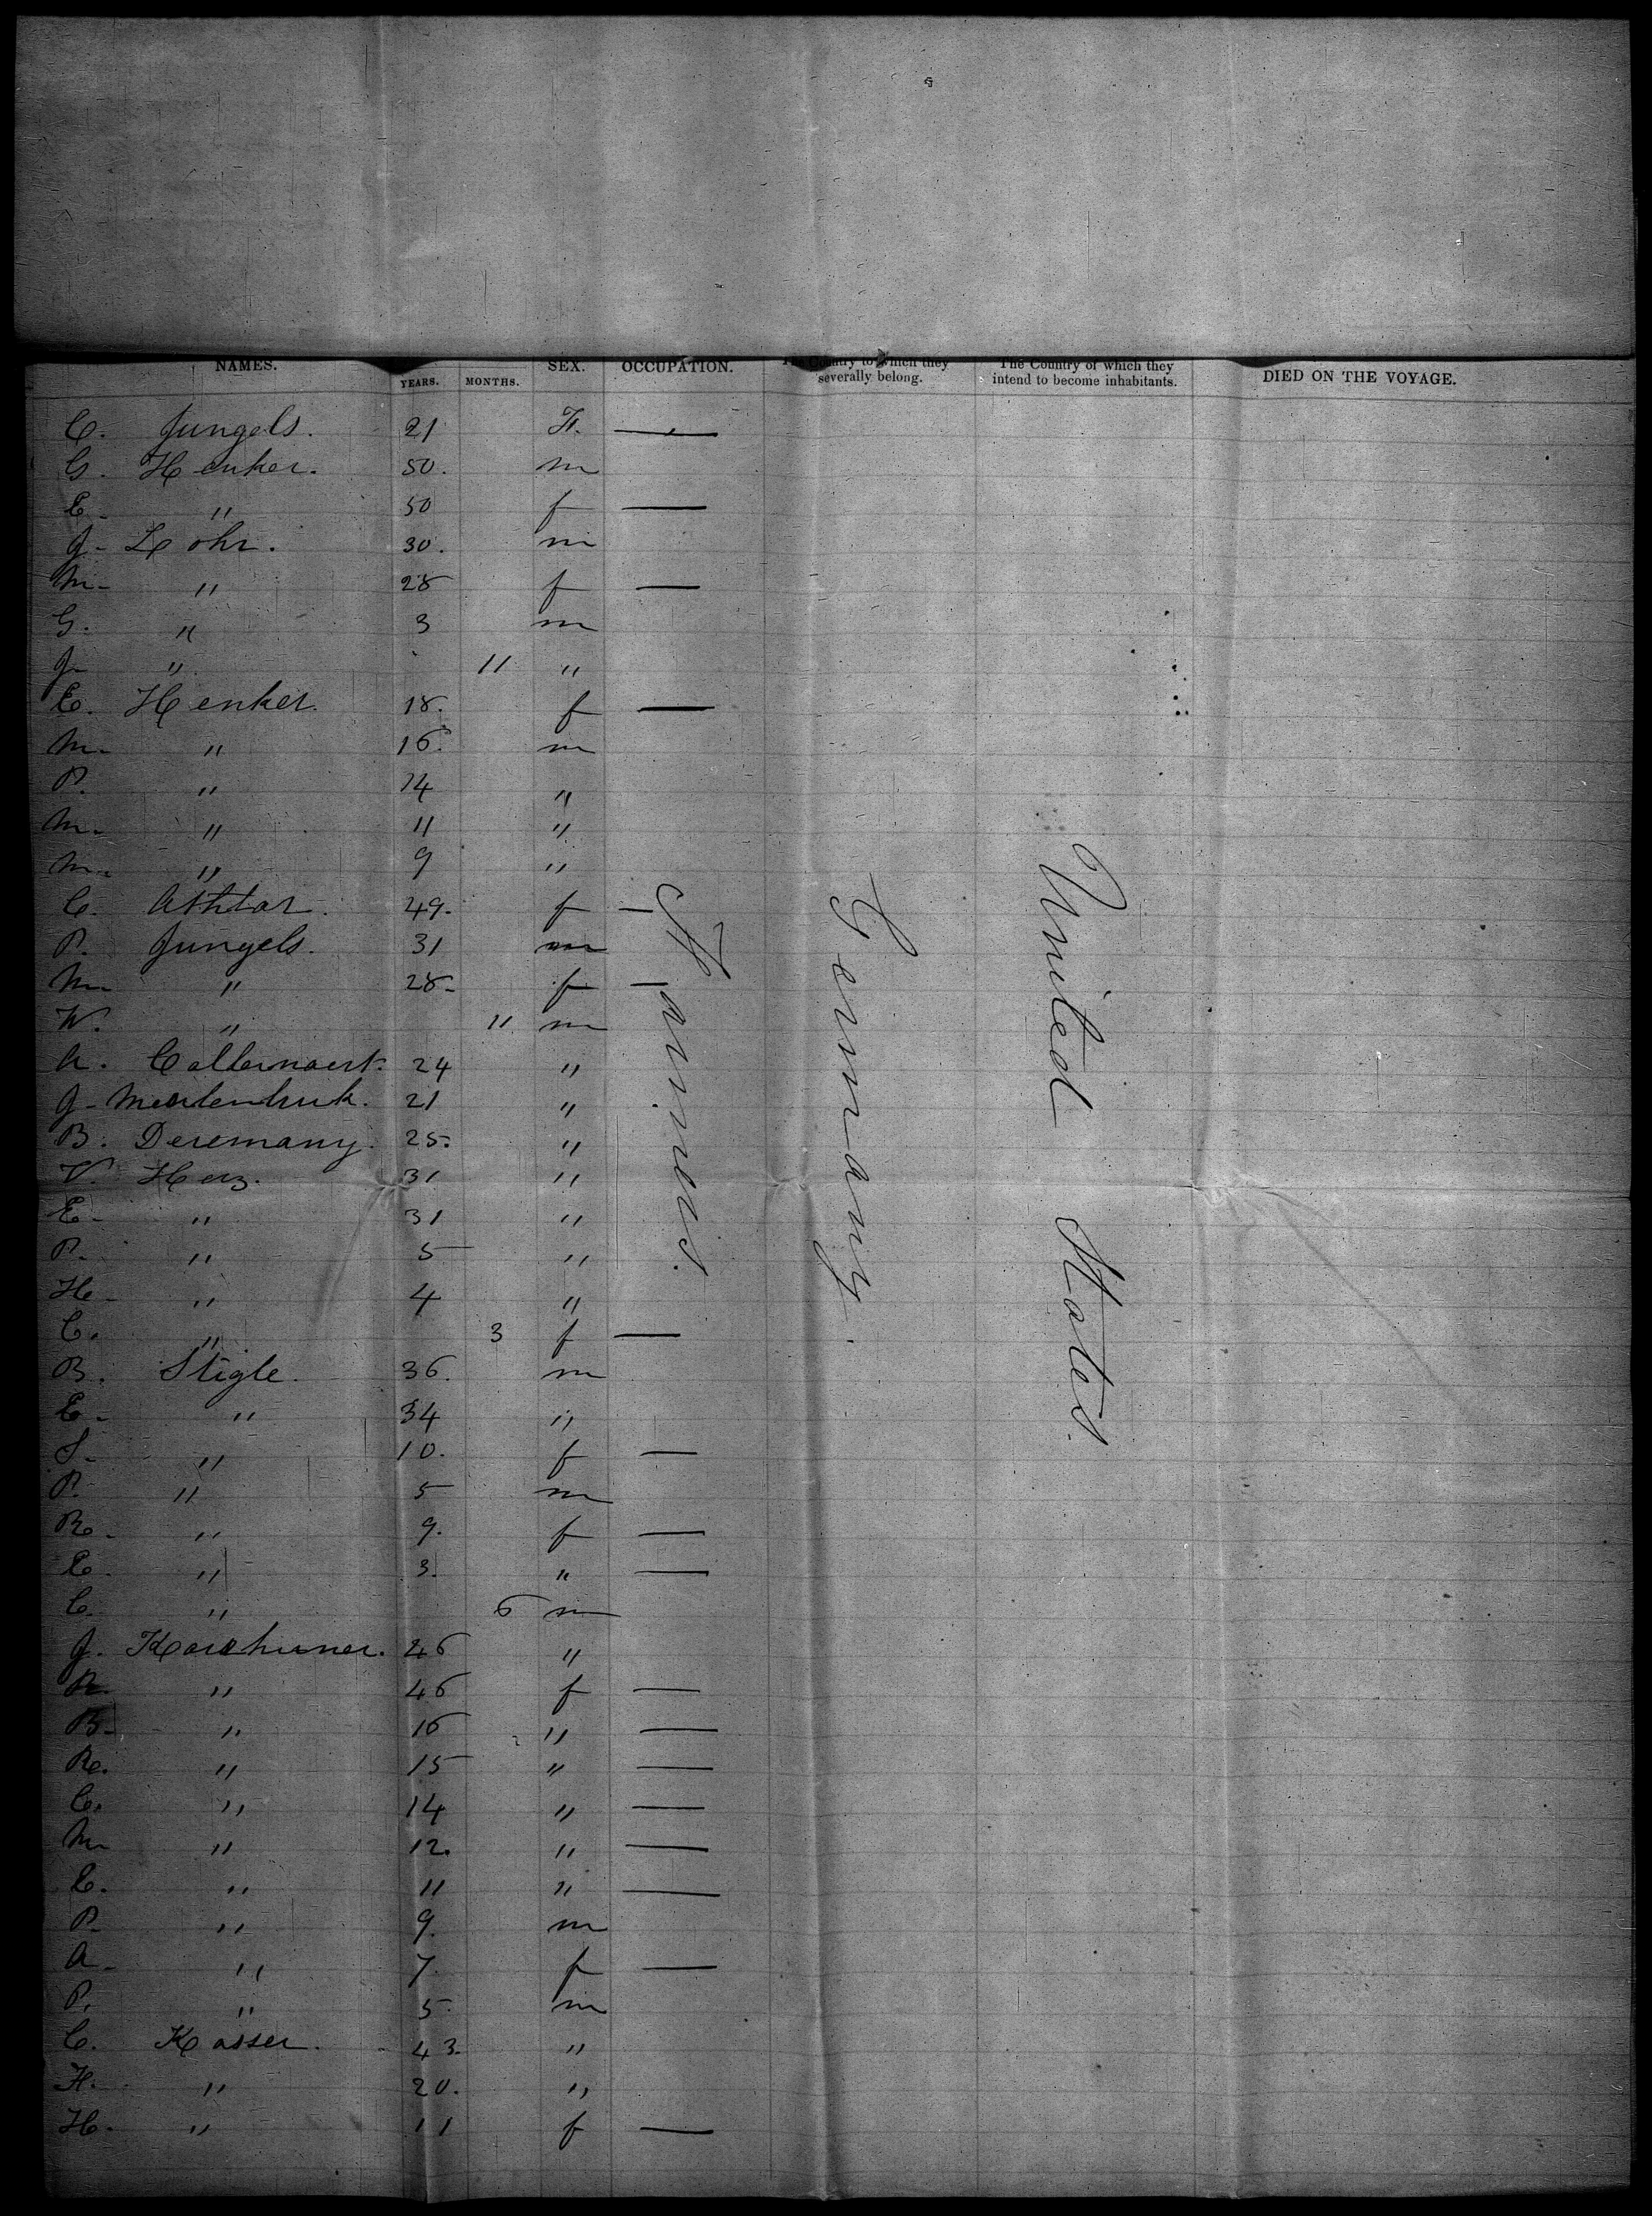 NAMES. YEARS. MONTHS. SEX. OCCUPATION. The Country to which they severally belong. The Country of which they intend to become inhabitants. DIED ON THE VOYAGE.
C. Jungels. 21 F. —
G. Henker. 50. m
E. " 50 f —
J. Lohr. 30. m
M. " 28 f —
G. " 3 m
J. " 11 "
E. Henker. 18. f —
M. " 16. m
P. " 14 "
M. " 11 "
M. " 9 "
C. Aththar. 49. f —
P. Jungels. 31 m
M. " 28 f —
W. " 11 m
A. Callernaert. 24 "
J. 21 "
B. Deremany. 25. "
V. Herz. 31 "
E. " 31 "
P. " 5 "
H. " 4 "
C. " 3 f —
B. Stigle. 36. m
E. " 34 "
S. " 10. f —
P. " 5 m
R. " 9. f —
E. " 3. " —
C. " 6 m
J. 46 "
" 46 f —
B. " 16 " —
R. " 15 " —
C. " 14 " —
M. " 12. " —
E. " 11 " —
P. " 9. m
A. " 7. f —
P. " 5. m
C. Kasser. 43. "
H. " 20. "
H. " 11 f —
Farmers.
Germany.
United States.